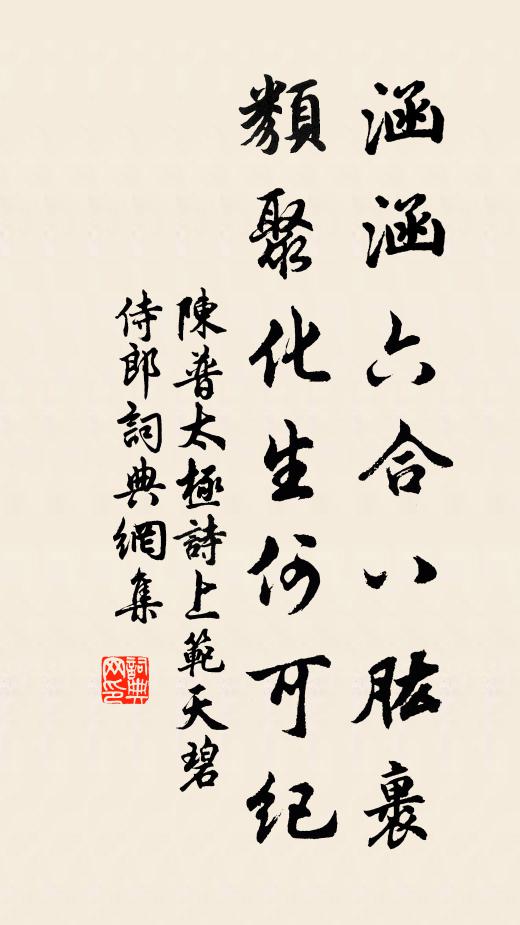 涵涵六合八肱裹
類聚化生何可纪
陳普太極詩上範天碧
侍郎詞典網集
詞典网印